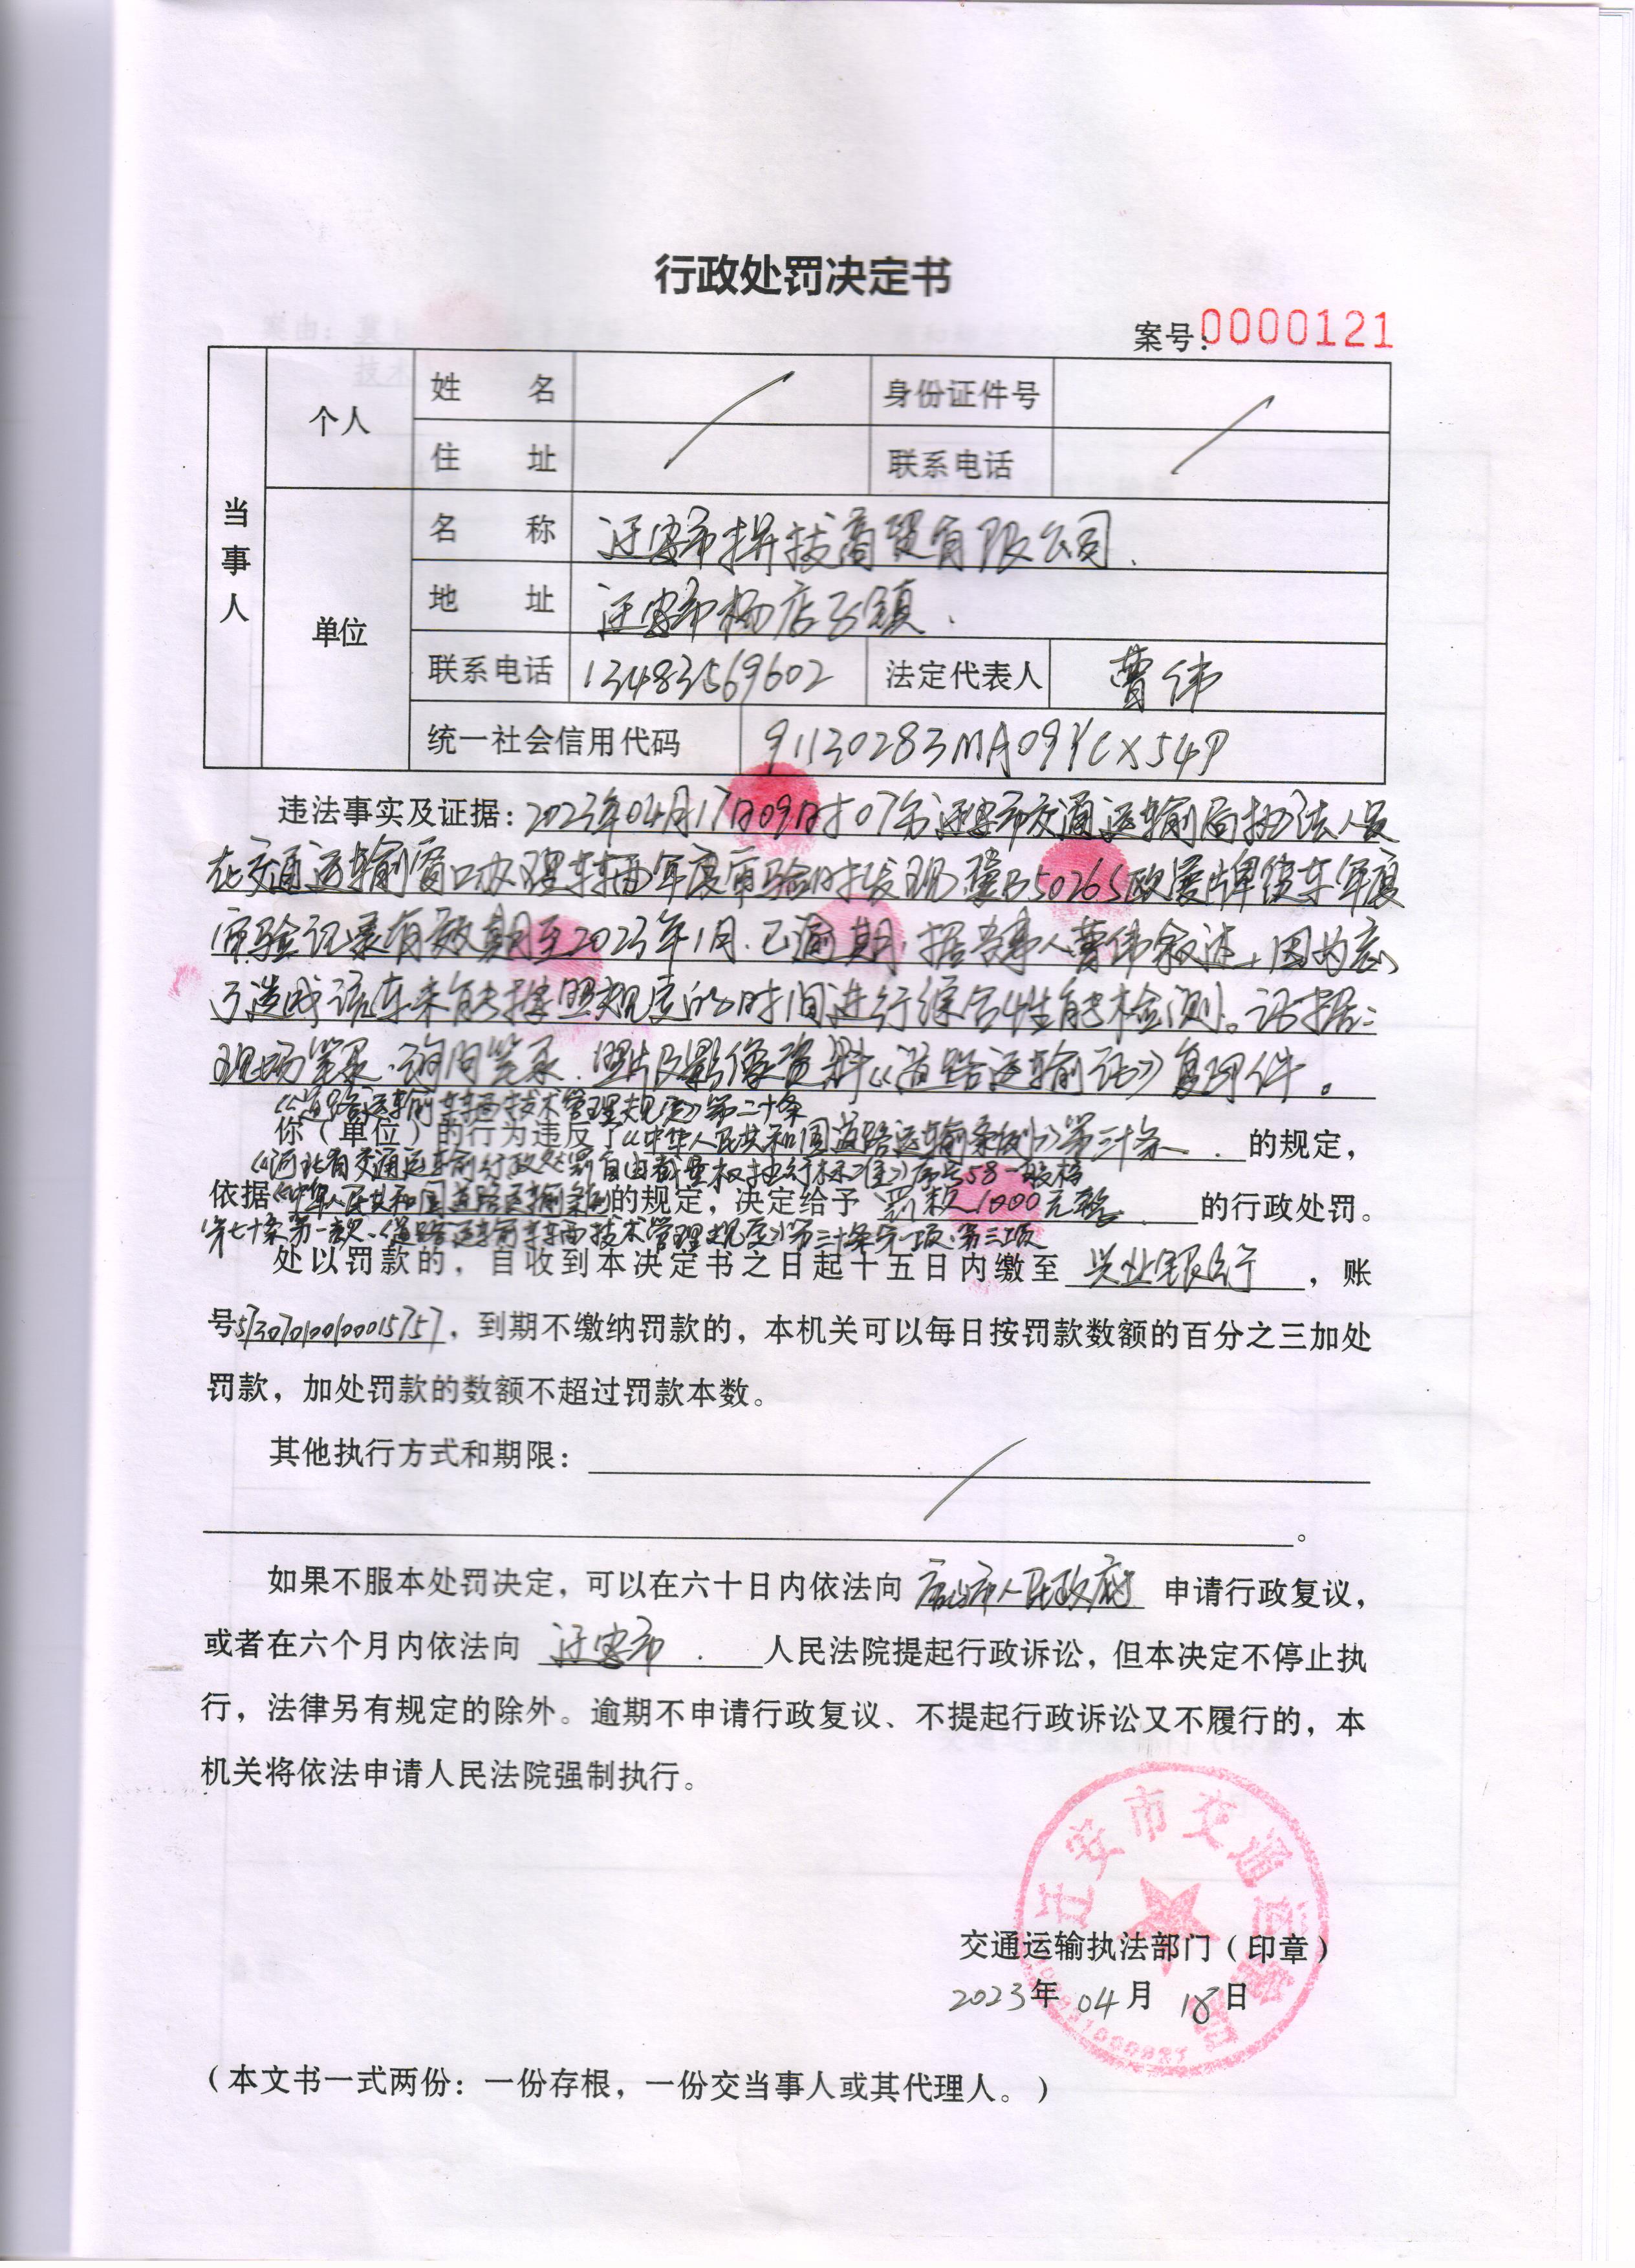 行政处罚决定书
案号:0000121
当事人
个人
姓名
身份证件号
住址
联系电话
单位
名称 迁安市拼拔商贸有限公司.
地址 迁安市杨店子镇.
联系电话 13483569602 法定代表人 曹伟
统一社会信用代码 91130283MA09YCX54P
违法事实及证据:2023年04月17日09时07分迁安市交通运输局执法人员
在交通运输窗口办理车辆年度审验时发现冀B5026S欧曼牌货车年度
审验记录有效期至2023年1月.已逾期,据当事人曹伟叙述,因为忘
了造成该车未能按照规定的时间进行综合性能检测。证据:
现场笔录.询问笔录.照片及影像资料《道路运输证》复印件。
《道路运输车辆技术管理规定》第二十条
你(单位)的行为违反了《中华人民共和国道路运输条例》第三十条.的规定,
《河北省交通运输行政处罚自由裁量权执行标准》序号58一般档
依据《中华人民共和国道路运输条例》的规定,决定给予 罚款1000元整.的行政处罚。
第七十条第一款.《道路运输车辆技术管理规定》第三十条第一项.第三项
处以罚款的,自收到本决定书之日起十五日内缴至 兴业银行,账
号,到期不缴纳罚款的,本机关可以每日按罚款数额的百分之三加处
罚款,加处罚款的数额不超过罚款本数。
其他执行方式和期限:
。
如果不服本处罚决定,可以在六十日内依法向 唐山市人民政府 申请行政复议,
或者在六个月内依法向 迁安市.人民法院提起行政诉讼,但本决定不停止执
行,法律另有规定的除外。逾期不申请行政复议、不提起行政诉讼又不履行的,本
机关将依法申请人民法院强制执行。
迁安市交通运输局
交通运输执法部门(印章)
2023年04月18日
(本文书一式两份:一份存根,一份交当事人或其代理人。)